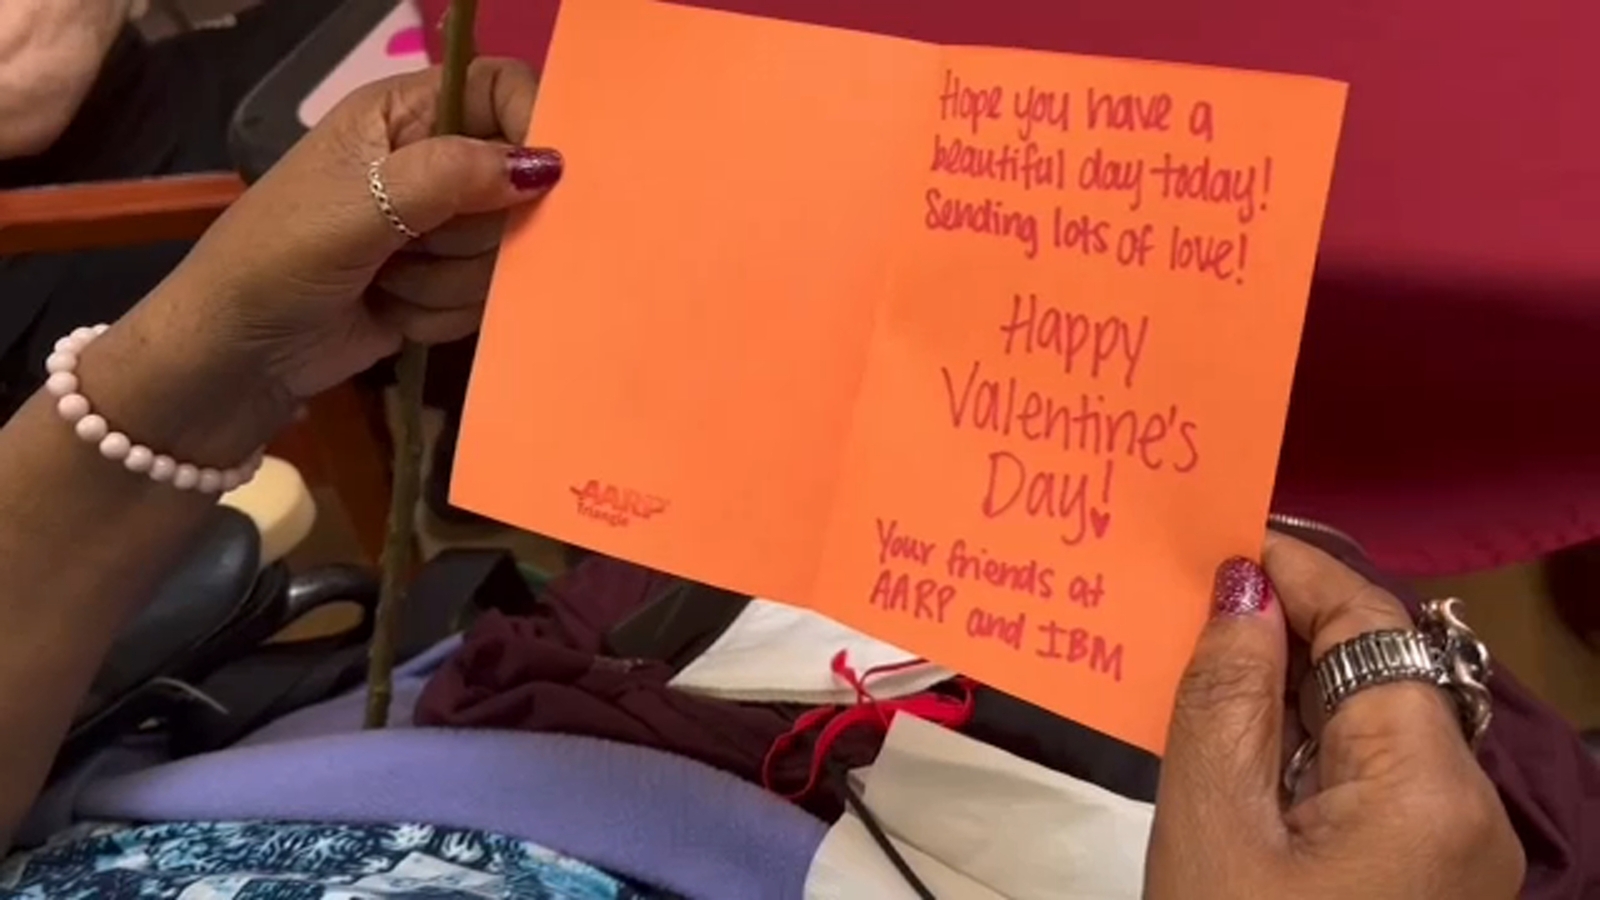 Hope you have a
beautiful day today!
Sending lots of love!
Happy
Valentine's
Day!
Your friends at
AARP and IBM
AARP
Triangle